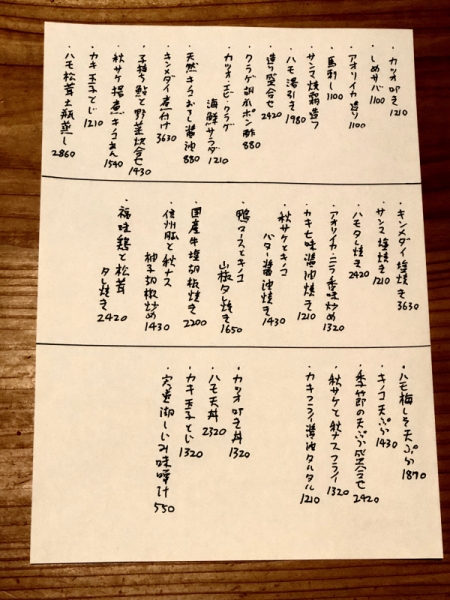 ・カツオ叩き 1210
・しめサバ 1100
・アオリイカ造り 1100
・馬刺し 1100
・サンマ焼霜造り
・ハモ湯引き 1980
・造り盛合せ 2420
・クラゲ胡瓜ポン酢 880
・カツオ・エビ・クラゲ
海鮮サラダ 1210
・天然キノコおろし醤油 880
・キンメダイ煮付け 3630
・子持ち鮎と野菜炊合せ 1430
・秋サケ揚煮キノコあん 1540
・カキ玉子とじ 1210
・ハモ松茸土瓶蒸し 2860
・キンメダイ塩焼き 3630
・サンマ塩焼き 1210
・ハモタレ焼き 2420
・アオリイカ・ニラ香味炒め 1320
・カキ七味醤油焼き 1210
・秋サケとキノコ
バター醤油焼き 1430
・鴨ロースとキノコ
山椒タレ焼き 1650
・国産牛塩胡椒焼き 2200
・信州豚と秋ナス
柚子胡椒炒め 1430
・福味鶏と松茸
タレ焼き 2420
・ハモ梅しそ天ぷら 1870
・キノコ天ぷら 1430
・季節の天ぷら盛合せ 2420
・秋サケと秋ナスフライ 1320
・カキフライ醤油タルタル 1210
・カツオ叩き丼 1320
・ハモ天丼 2320
・カキ玉子とじ 1320
・宍道湖しじみ味噌汁 550